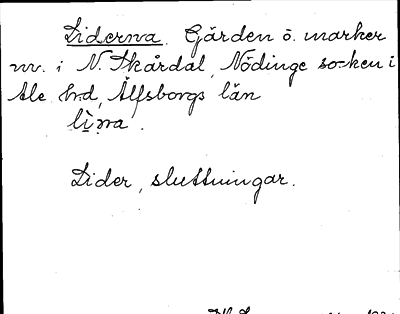 Liderna. Gärden o. marker
m. i N. Skårdal, Nödinge socken i
Ale hrd, Älfsborgs län
li̱na.
Lider, sluttningar.